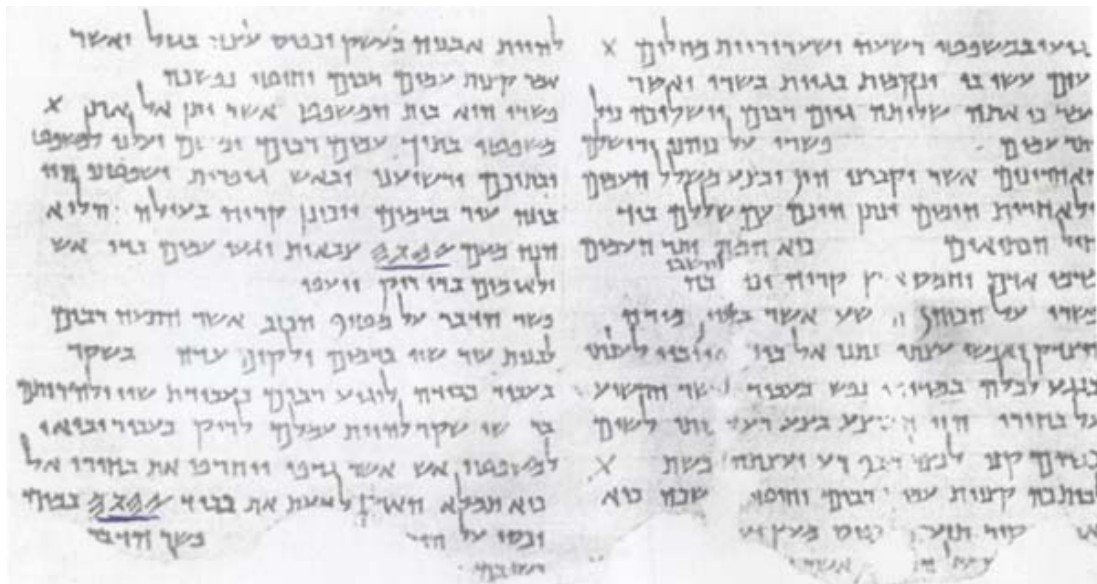 במשפטי רשעה ושערוריות מחלים X
עשו בו ונקמות בגוית בשרו ואשר
כי אתה שלותה גוים רבים וישלוכה
יתר עמים פשרו על כוהני ירושלם
האחרונים אשר יקבוצו הון ובצע משלל העמים
ולאחרית הימים ינתן הונם עם שללם ביד
חיל הכתיאים כיא המה יתר העמים
אדם וחמס קריה יושבי בה
פשרו על הכוהן אשר
הצדק ואנשי עצתו נתנו אל ביד
בנגע לכלה נפש בעבור אשר הרשיע
על בחירו הוי בצע רע לביתו לשום
במרום קנו רע יעצתה בשת X
לביתכה קצוות רבים וחוטי כיא
קיר
להיות אבניה בעשק וכפיס עיצה בגזל ואשר
אמר קצות עמים רבים וחוטי נפשכה
פשרו הוא בית המשפט אשר יתן אל את X
משפטו בתוך עמים רבים ומשם יעלנו למשפט
ובתוכם ירשיענו ובאש גופרית ישפטנו הוי
בונה עיר בדמים ויכונן קריה בעולה הלוא
הנה מעם 𐤉𐤄𐤅𐤄 צבאות יגעו עמים בדי אש
ולאומים בדי ריק ייעפו
פשר הדבר על מטיף הכזב אשר התעה רבים
לבנות עיר שוו בדמים ולקים עדה בשקר
בעבור כבודה לוגיע רבים בעבודת שוו ולהרותם
שקר להיות עמלם לריק בעבור יבואו
למשפטי אש אשר גדפו ויחרפו את בחירי אל
כיא תמלא הארץ לדעת את כבוד 𐤉𐤄𐤅𐤄 כמים
יכסו על הים פשר הדבר